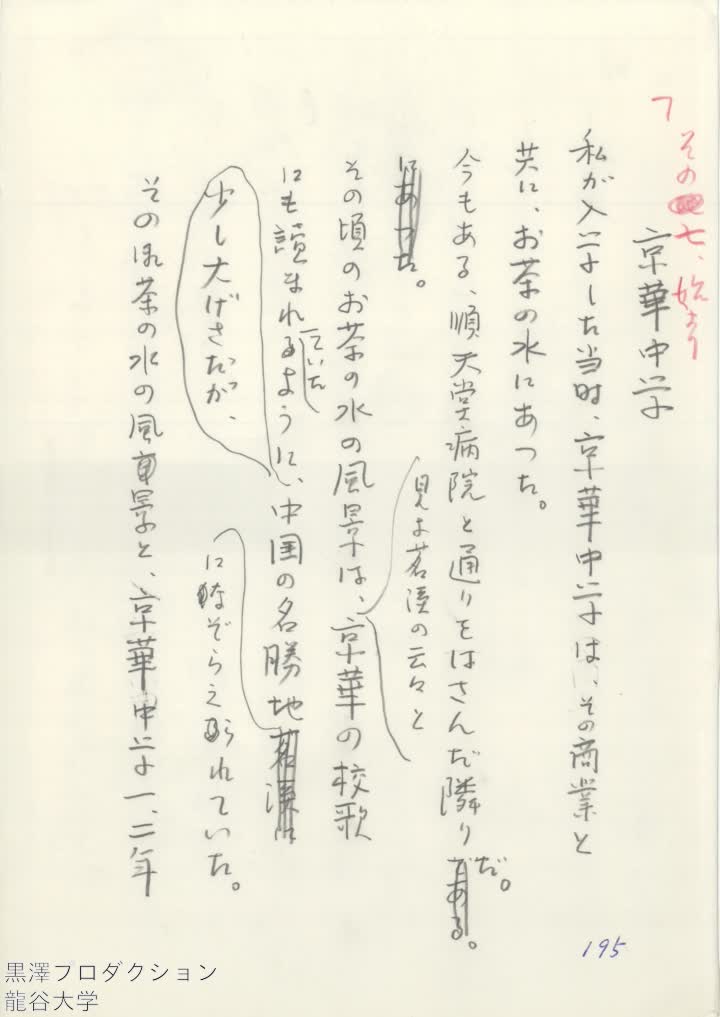 その七、始まり
京華中学
私が入学した当時、京華中学は、その商業と
共に、お茶の水にあつた。
今もある、順天堂病院と通りをはさんだ隣りである。
だ。
にあつた。
見よ茗渓の云々と
その頃のお茶の水の風景は、京華の校歌
にも讀まれるように、中国の名勝地茗渓に
ていた
少し大げさだが、
になぞらえられていた。
そのお茶の水の風景と、京華中学一、二年
195
黒澤プロダクション
龍谷大学